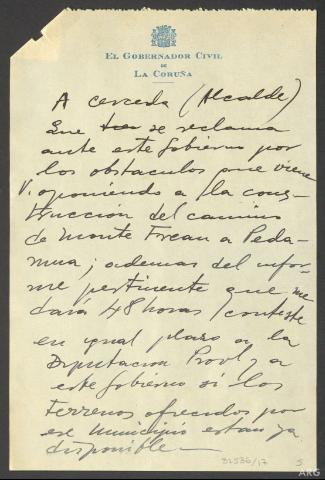 EL GOBERNADOR CIVIL
DE
LA CORUÑA
A Cerceda (Alcalde)
Que se reclama
ante este Gobierno por
los obstaculos que viene
V. oponiendo a la cons-
trucción del camino
de Monte Xrean a Peda-
mua; ademas del infor-
me pertinente que me
dará 48 horas, conteste
en igual plazo a la
Diputacion Provl y a
este Gobierno si los
terrenos ofrecidos por
ese Municipio estan ya
disponible
32536/17
5
ARG